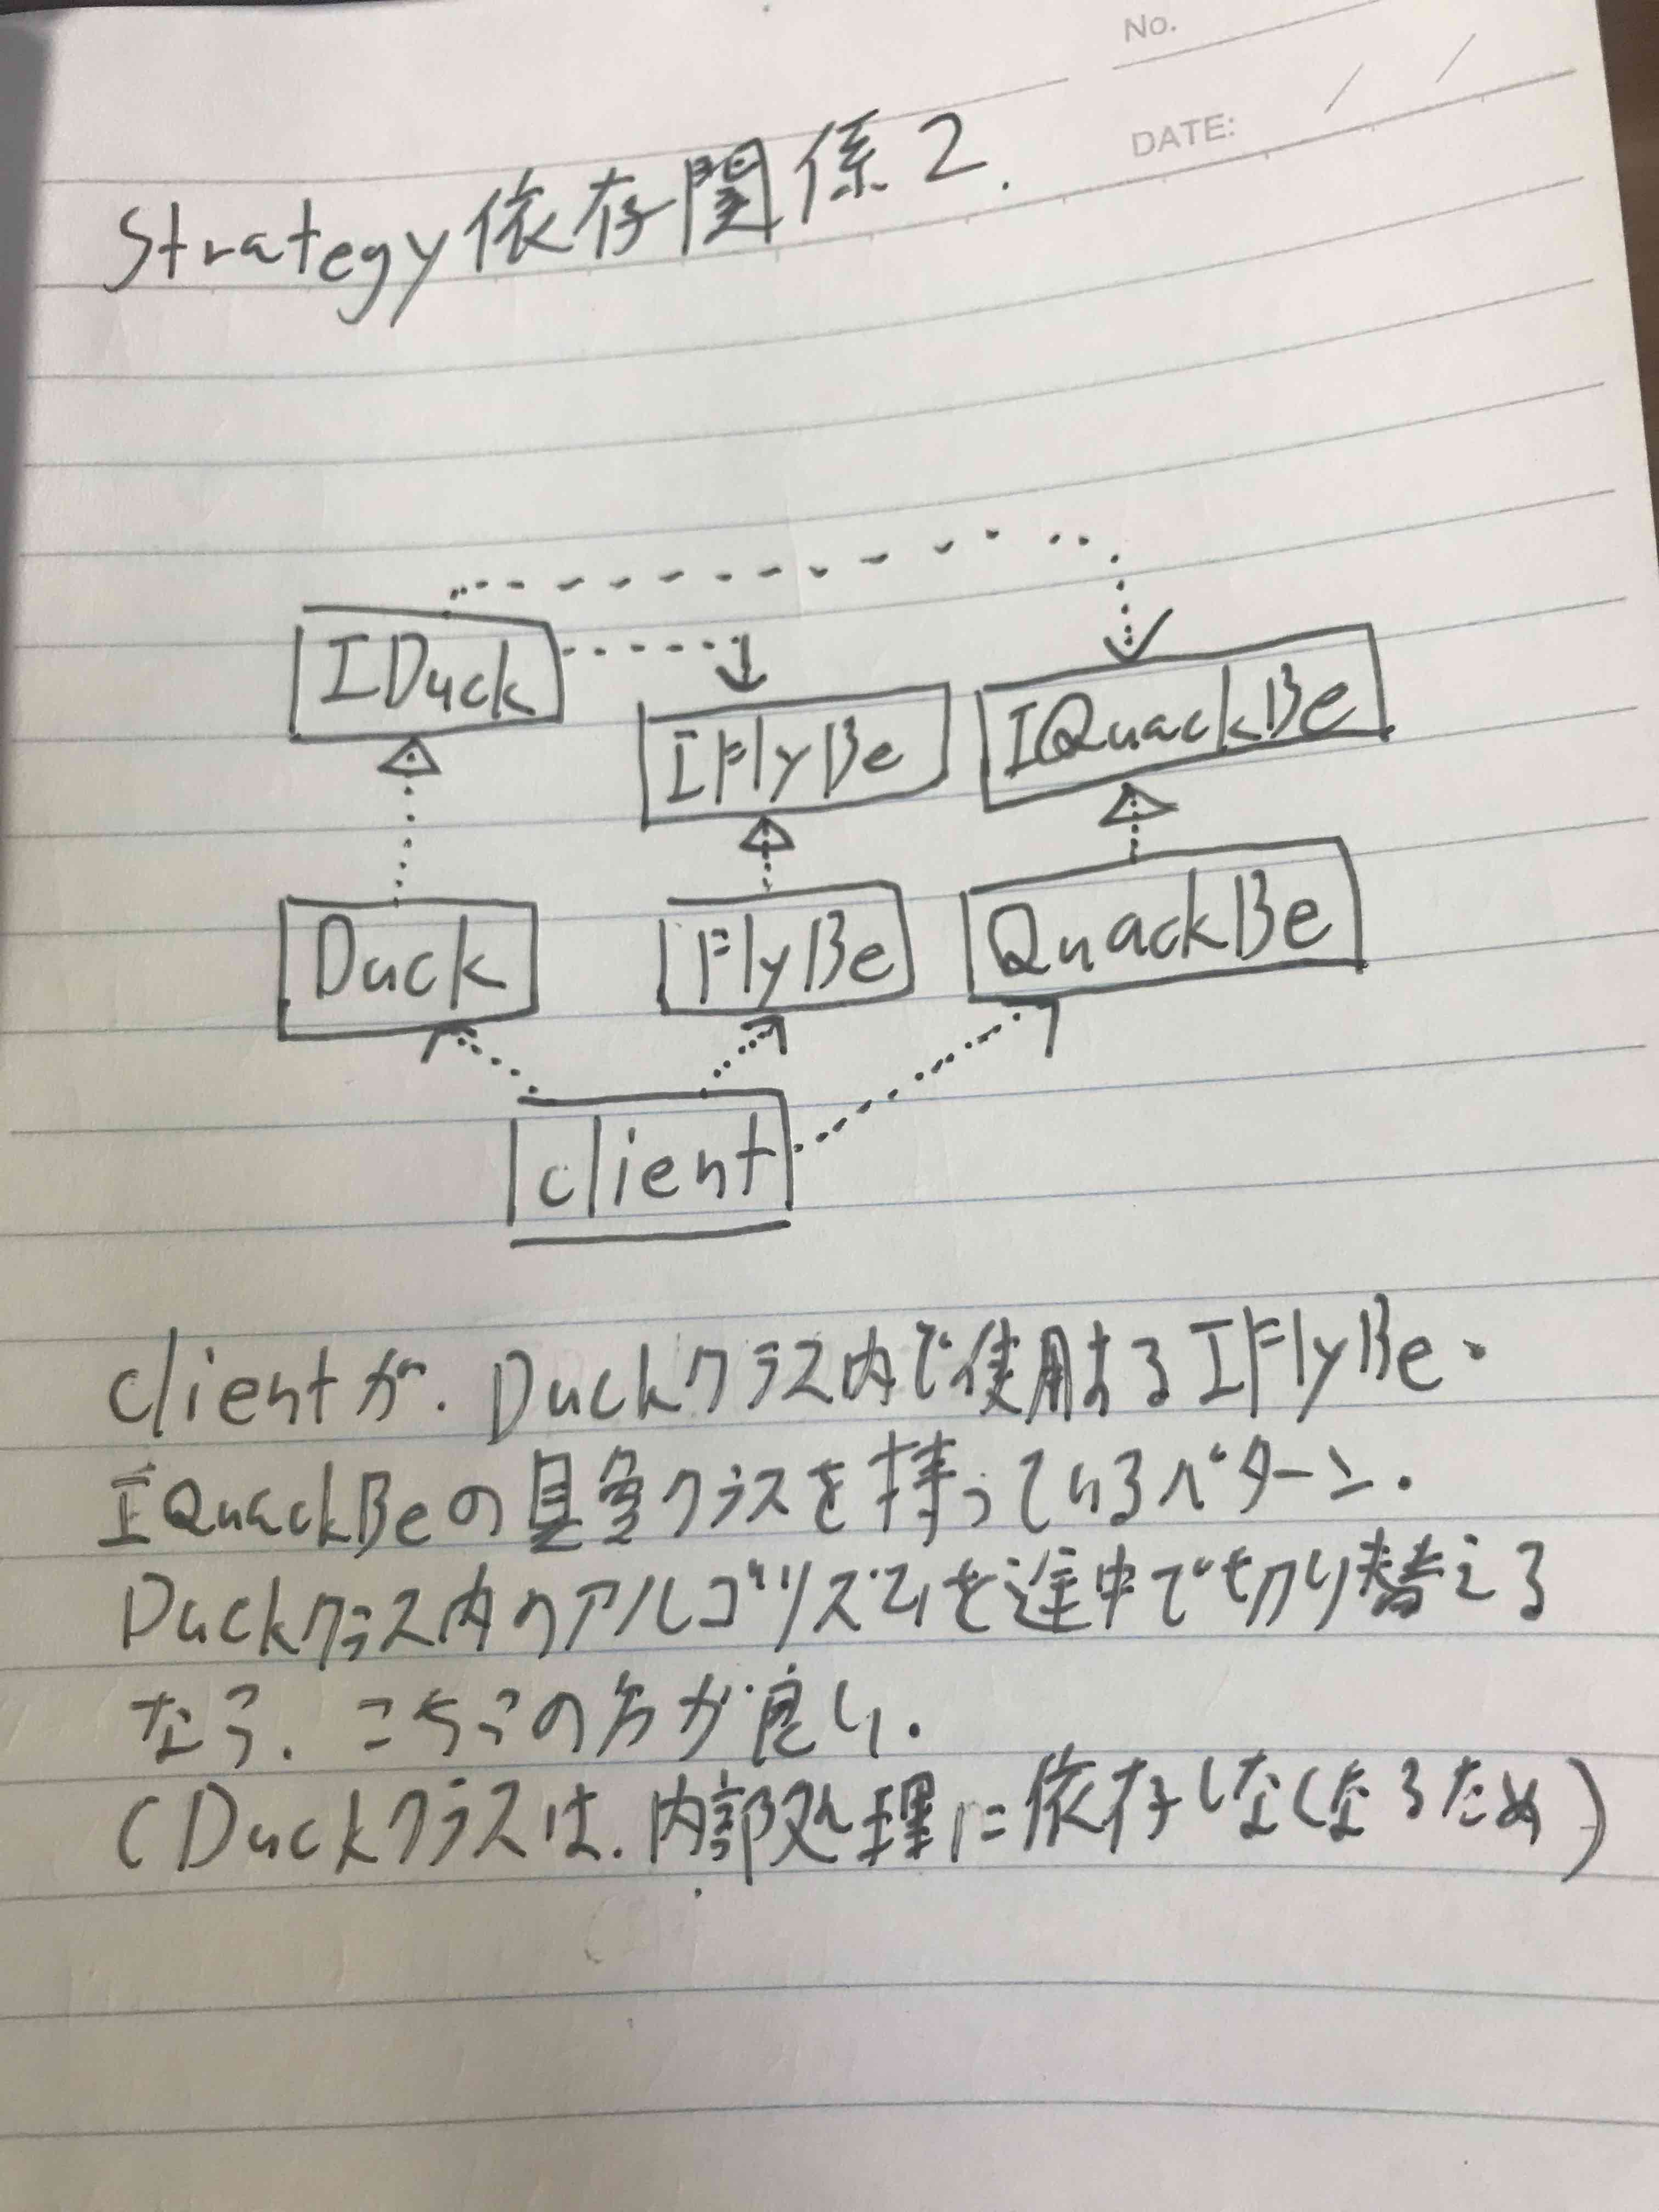 No.
DATE: / /
Strategy依存関係2.
IDuck
IFlyBe
IQuackBe
Duck
FlyBe
QuackBe
client
clientが、Duckクラス内で使用するIFlyBe・
IQuackBeの具象クラスを持っているパターン.
Duckクラス内のアルゴリズムを途中で切り替える
なら、こちらの方が良い.
(Duckクラスは、内部処理に依存しなくなるため)